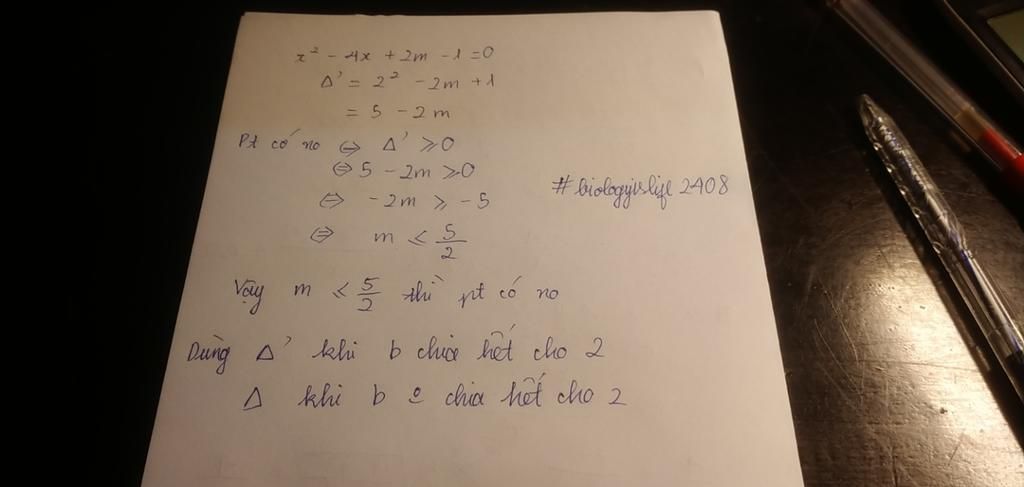 x² - 4x + 2m - 1 = 0
Δ' = 2² - 2m + 1
= 5 - 2m
Pt có no ⇔ Δ' ⩾ 0
⇔ 5 - 2m ⩾ 0
#biologyislife2408
⇔ -2m ⩾ -5
⇔ m ⩽ 5/2
Vậy m ⩽ 5/2 thì pt có no
Dùng Δ' khi b chia hết cho 2
Δ khi b chia hết cho 2